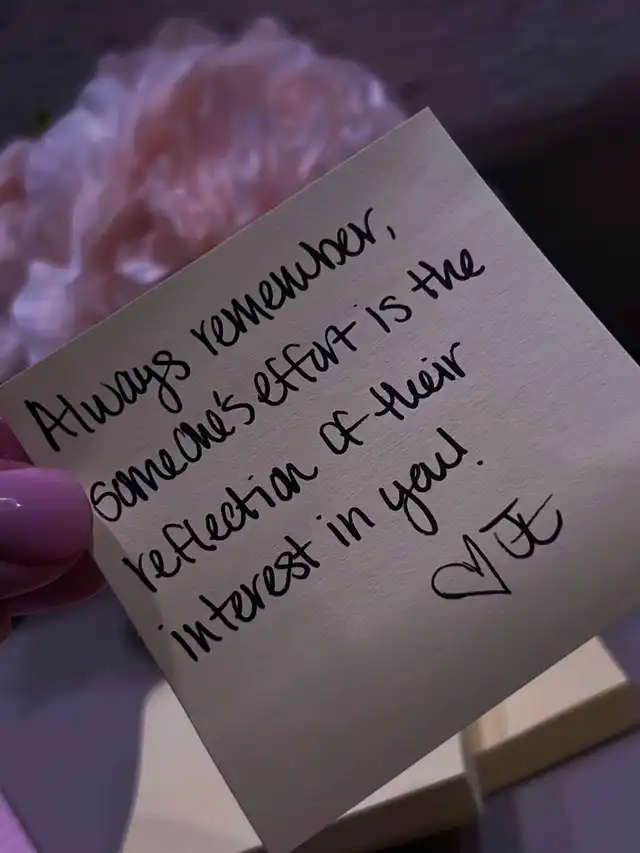 Always remember,
someone's effort is the
reflection of their
interest in you!
♡ JE